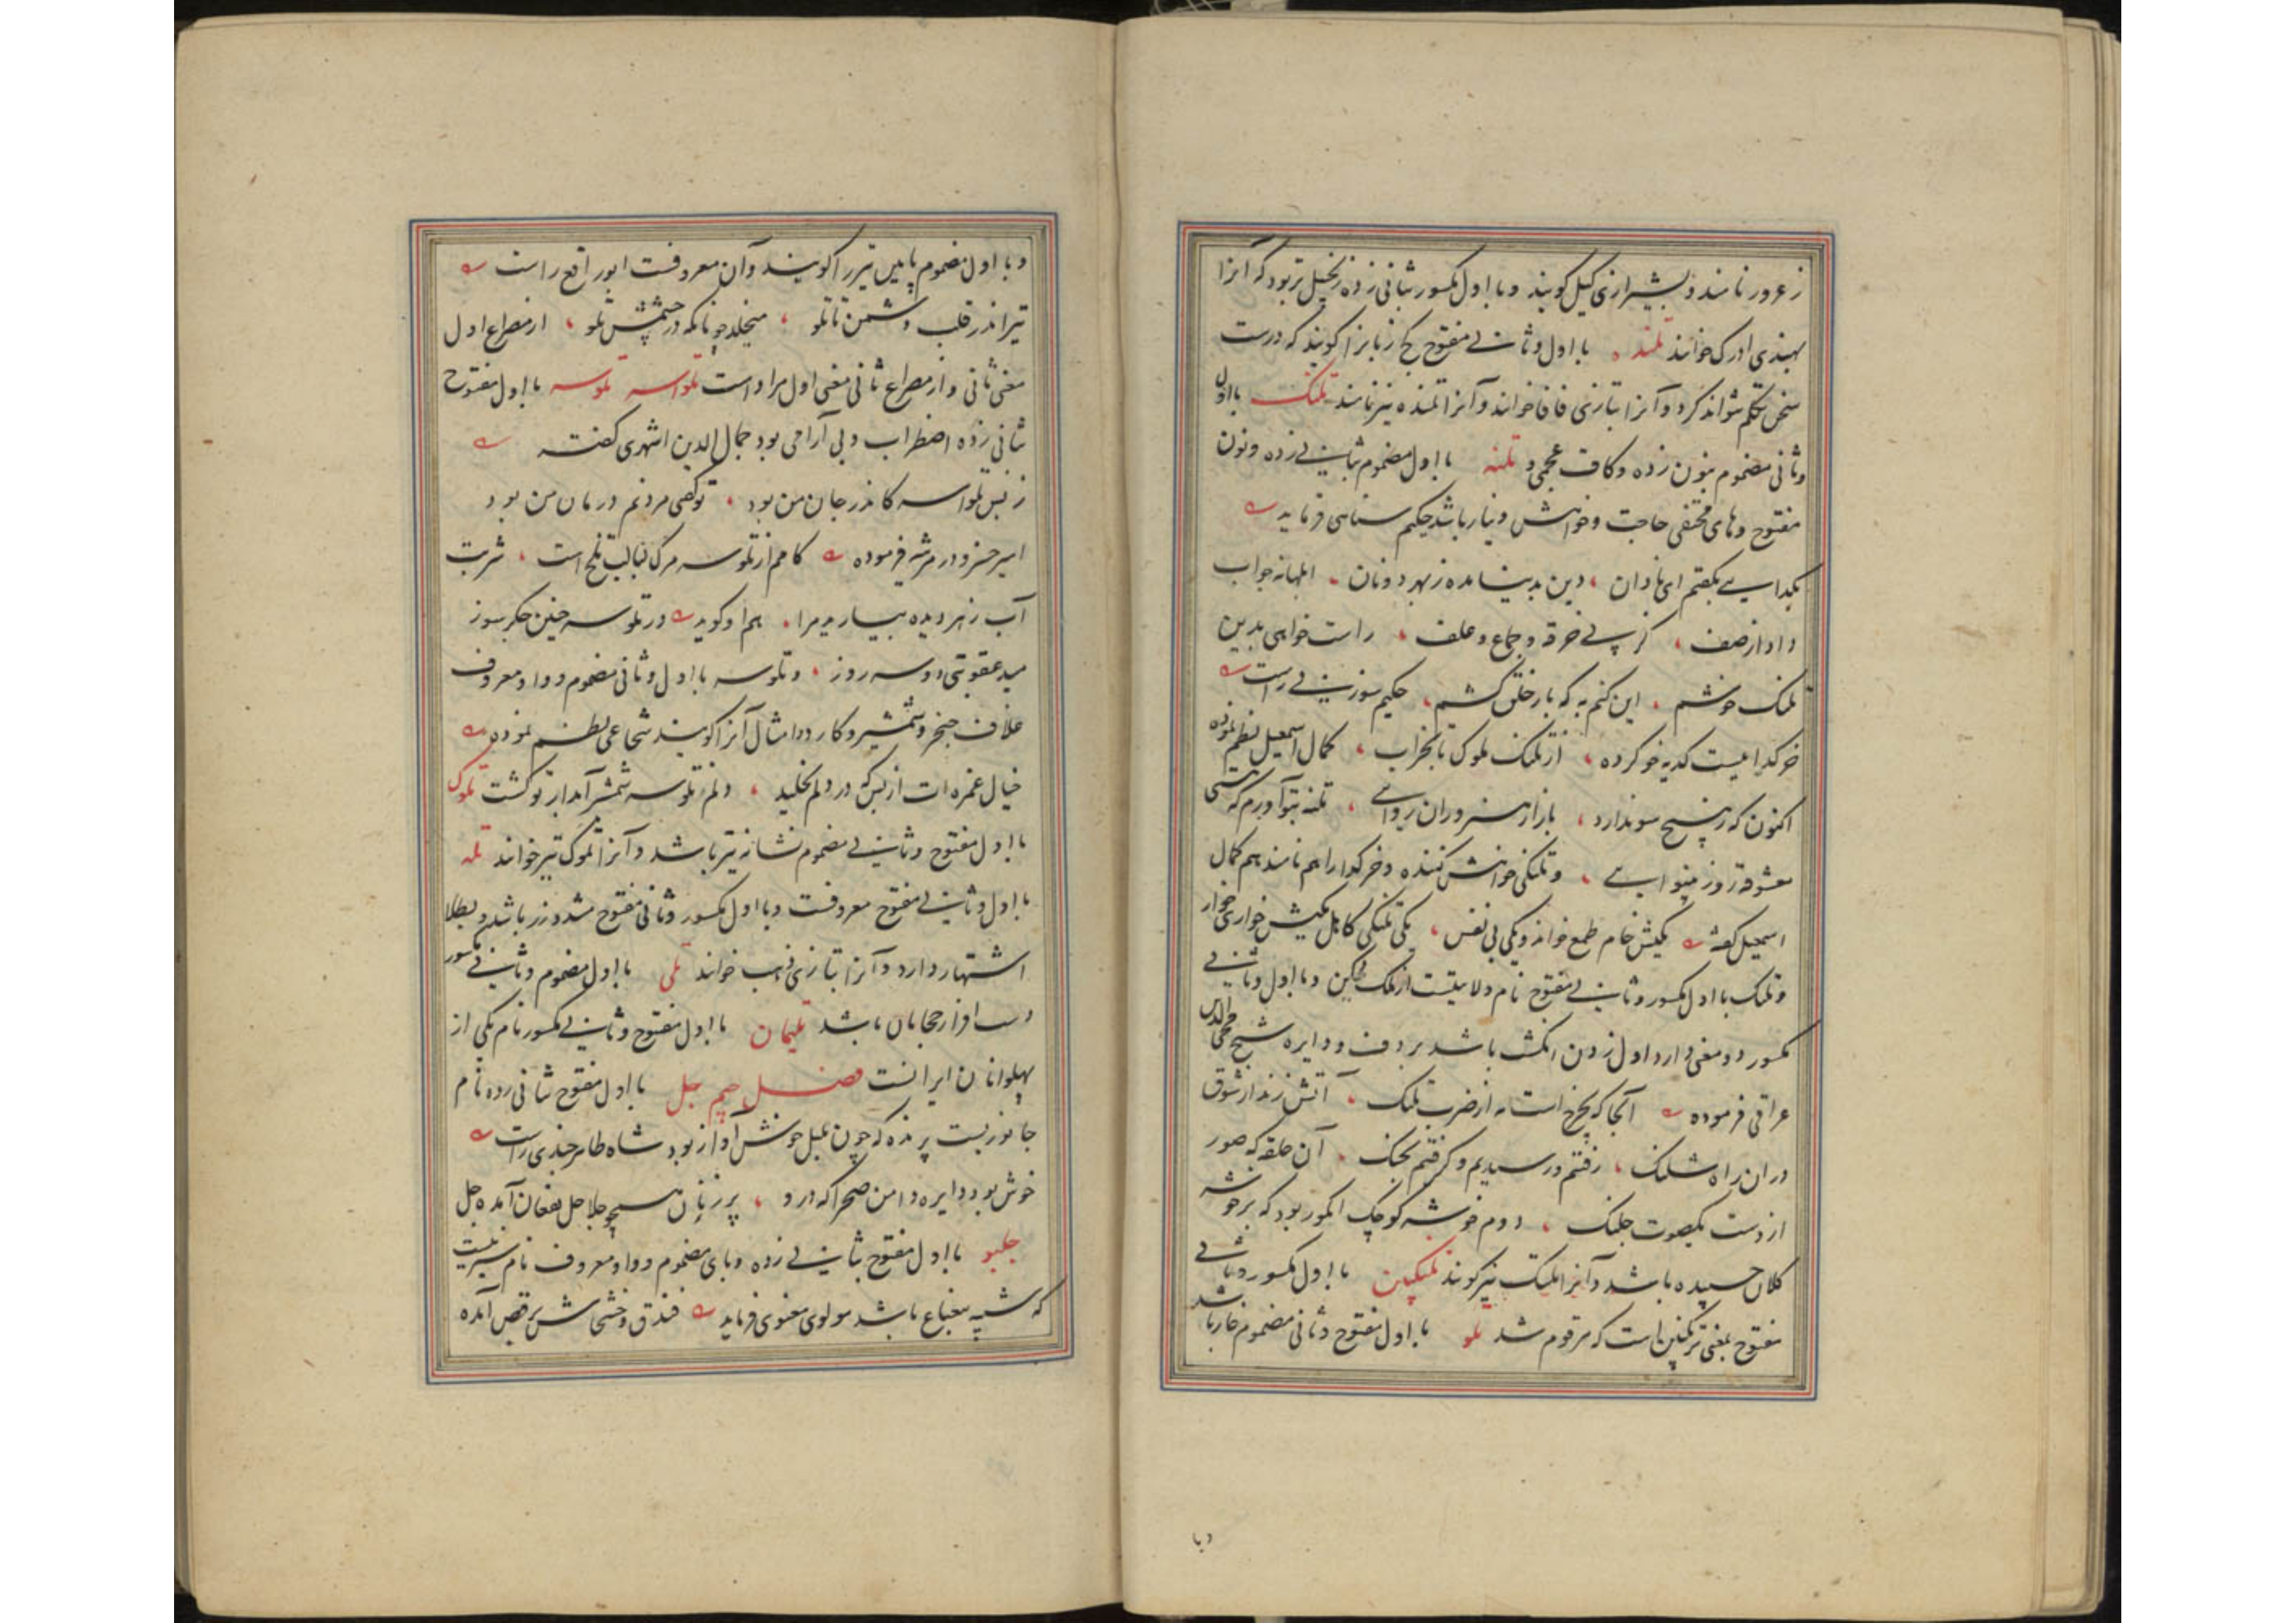 زعرور نامند و بشیرازی کیل کویند و با اول مکسور بثانی زده زنجبیل تر بود که آنرا
بهندی ادرک خوانند تلنده با اول و ثانی مفتوح کج زبانرا کویند که درست
سخن تکلم نتواند کرد و آنرا بتازی فافا خوانند و آنرا تمنده نیز نامند تلنک با اول
و ثانی مضموم بنون زده و کاف عجمی و تلنه با اول مضموم بثانی زده و نون
مفتوح و های مختفی حاجت و خواهش و نیاز باشد حکیم سنائی فرماید
بکدایی بکفتم ای نادان دین بدینا مده ز بهر دو نان ابلهانه جواب
داد از صف کز پی خرقه و جماع و علف راست خواهی بدین
تلنک خوشم این کنم به که بار خلق کشم حکیم سوزنی راست
خر کدائیست کدیه خو کرده از تلنک ملوک تا بخراب کمال اسمعیل نظم نموده
اکنون که ز هیچ سو ندارد بازار هنروران روائی تلنه بتو آورم که هستی
معشوقه روز بینوایی و تلنکی خواهش کننده و خر کدا را هم نامند هم کمال
اسمعیل کفته یکیش خام طمع خواند و یکی بی نفس یکی تلنکی کاهل یکیش خواری خوار
و تلنک با اول مکسور و ثانی مفتوح نام ولایتیست از ملک دکین و با اول و ثانی
مکسور دو معنی دارد اول زدن انکشت باشد بر دف و دایره شیخ محی الدین
عراقی فرموده آنجا که بچرخ است نه از ضرب تلنک آتش زند از شوق
در ان راه شلنک رفتم و رسیدیم و کرفتیم بچنک آن حلقه که صور
از دست بکصوت جلنک دوم خوشه کوچک انکور بود که بر خوشه
کلان چسپیده باشد و آنرا تلیک نیز کویند تلنکپین با اول مکسور و ثانی
مفتوح بمعنی ترنکبین است که مرقوم شد تلو با اول مفتوح و ثانی مضموم خار باشد
وبا
و با اول مضموم پاپیس تیر را کویند و آن معروفست ابو رافع راست
تیر اندر قلب دشمن تا تلو میخلد چونانکه در چشمش تلو از مصراع اول
معنی ثانی و از مصراع ثانی معنی اول مراد است تلواسه تلوسه با اول مفتوح
ثانی زده اضطراب و بی آرامی بود جمال الدین اشهری کفته
ز بس تلواسه کاندر جان من بود تو کفتی مردنم درمان من بود
امیر خسرو در مرثیه فرموده کامم از تلوسه مرک لبالب تلخ است شربت
آب ز هر دیده بیارید مرا هم او کوید در تلوسه چنین جکر سوز
مید عقوبتی دو سه روز و تلوسه با اول و ثانی مضموم و واو معروف
غلاف خنجر و شمشیر و کارد و امثال آنرا کویند شجاعی نظم نموده
خیال غمزه ات از بس که در دلم بخلید دلم تلوسه شمشیر آبدار تو کشت تلوک
با اول مفتوح و ثانی مضموم نشانه تیر باشد و آنرا تموک نیز خوانند تله
با اول و ثانی مفتوح معروفست و با اول مکسور و ثانی مفتوح مشدد زر باشد و بطلا
اشتهار دارد و آنرا بتازی ذهب خوانند تلی با اول مضموم و ثانی مکسور
دست افزار حجامان باشد تلیمان با اول مفتوح و ثانی مکسور نام یکی از
پهلوانان ایرانست فصل جیم جل با اول مفتوح ثانی زده نام
جانوریست پرنده که چون بلبل خوش آواز بود شاه طاهر خندی راست
خوش بود دایره دامن صحرا که درو پر زنان همچو جلاجل بفغان آمده جل
جلبو با اول مفتوح بثانی زده و بای مضموم و واو معروف نام سبزیست
که شبیه بنعناع باشد مولوی معنوی فرماید فندق و خشخاش برقص آمده